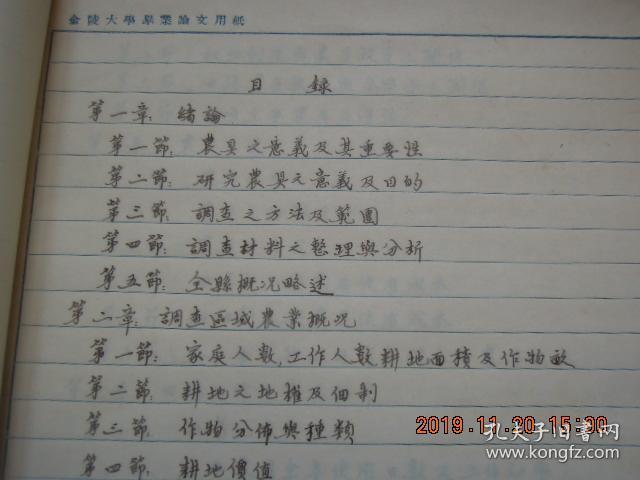 金陵大學畢業論文用紙
目錄
第一章：緒論
第一節：農具之意義及其重要性
第二節：研究農具之意義及目的
第三節：調查之方法及範圍
第四節：調查材料之整理與分析
第五節：全縣概況略述
第二章：調查區域農業概況
第一節：家庭人數，工作人數耕地面積及作物畝
第二節：耕地之地權及佃制
第三節：作物分佈與種類
第四節：耕地價值
2019.11.20 15:00
孔夫子旧书网
www.kongfz.com